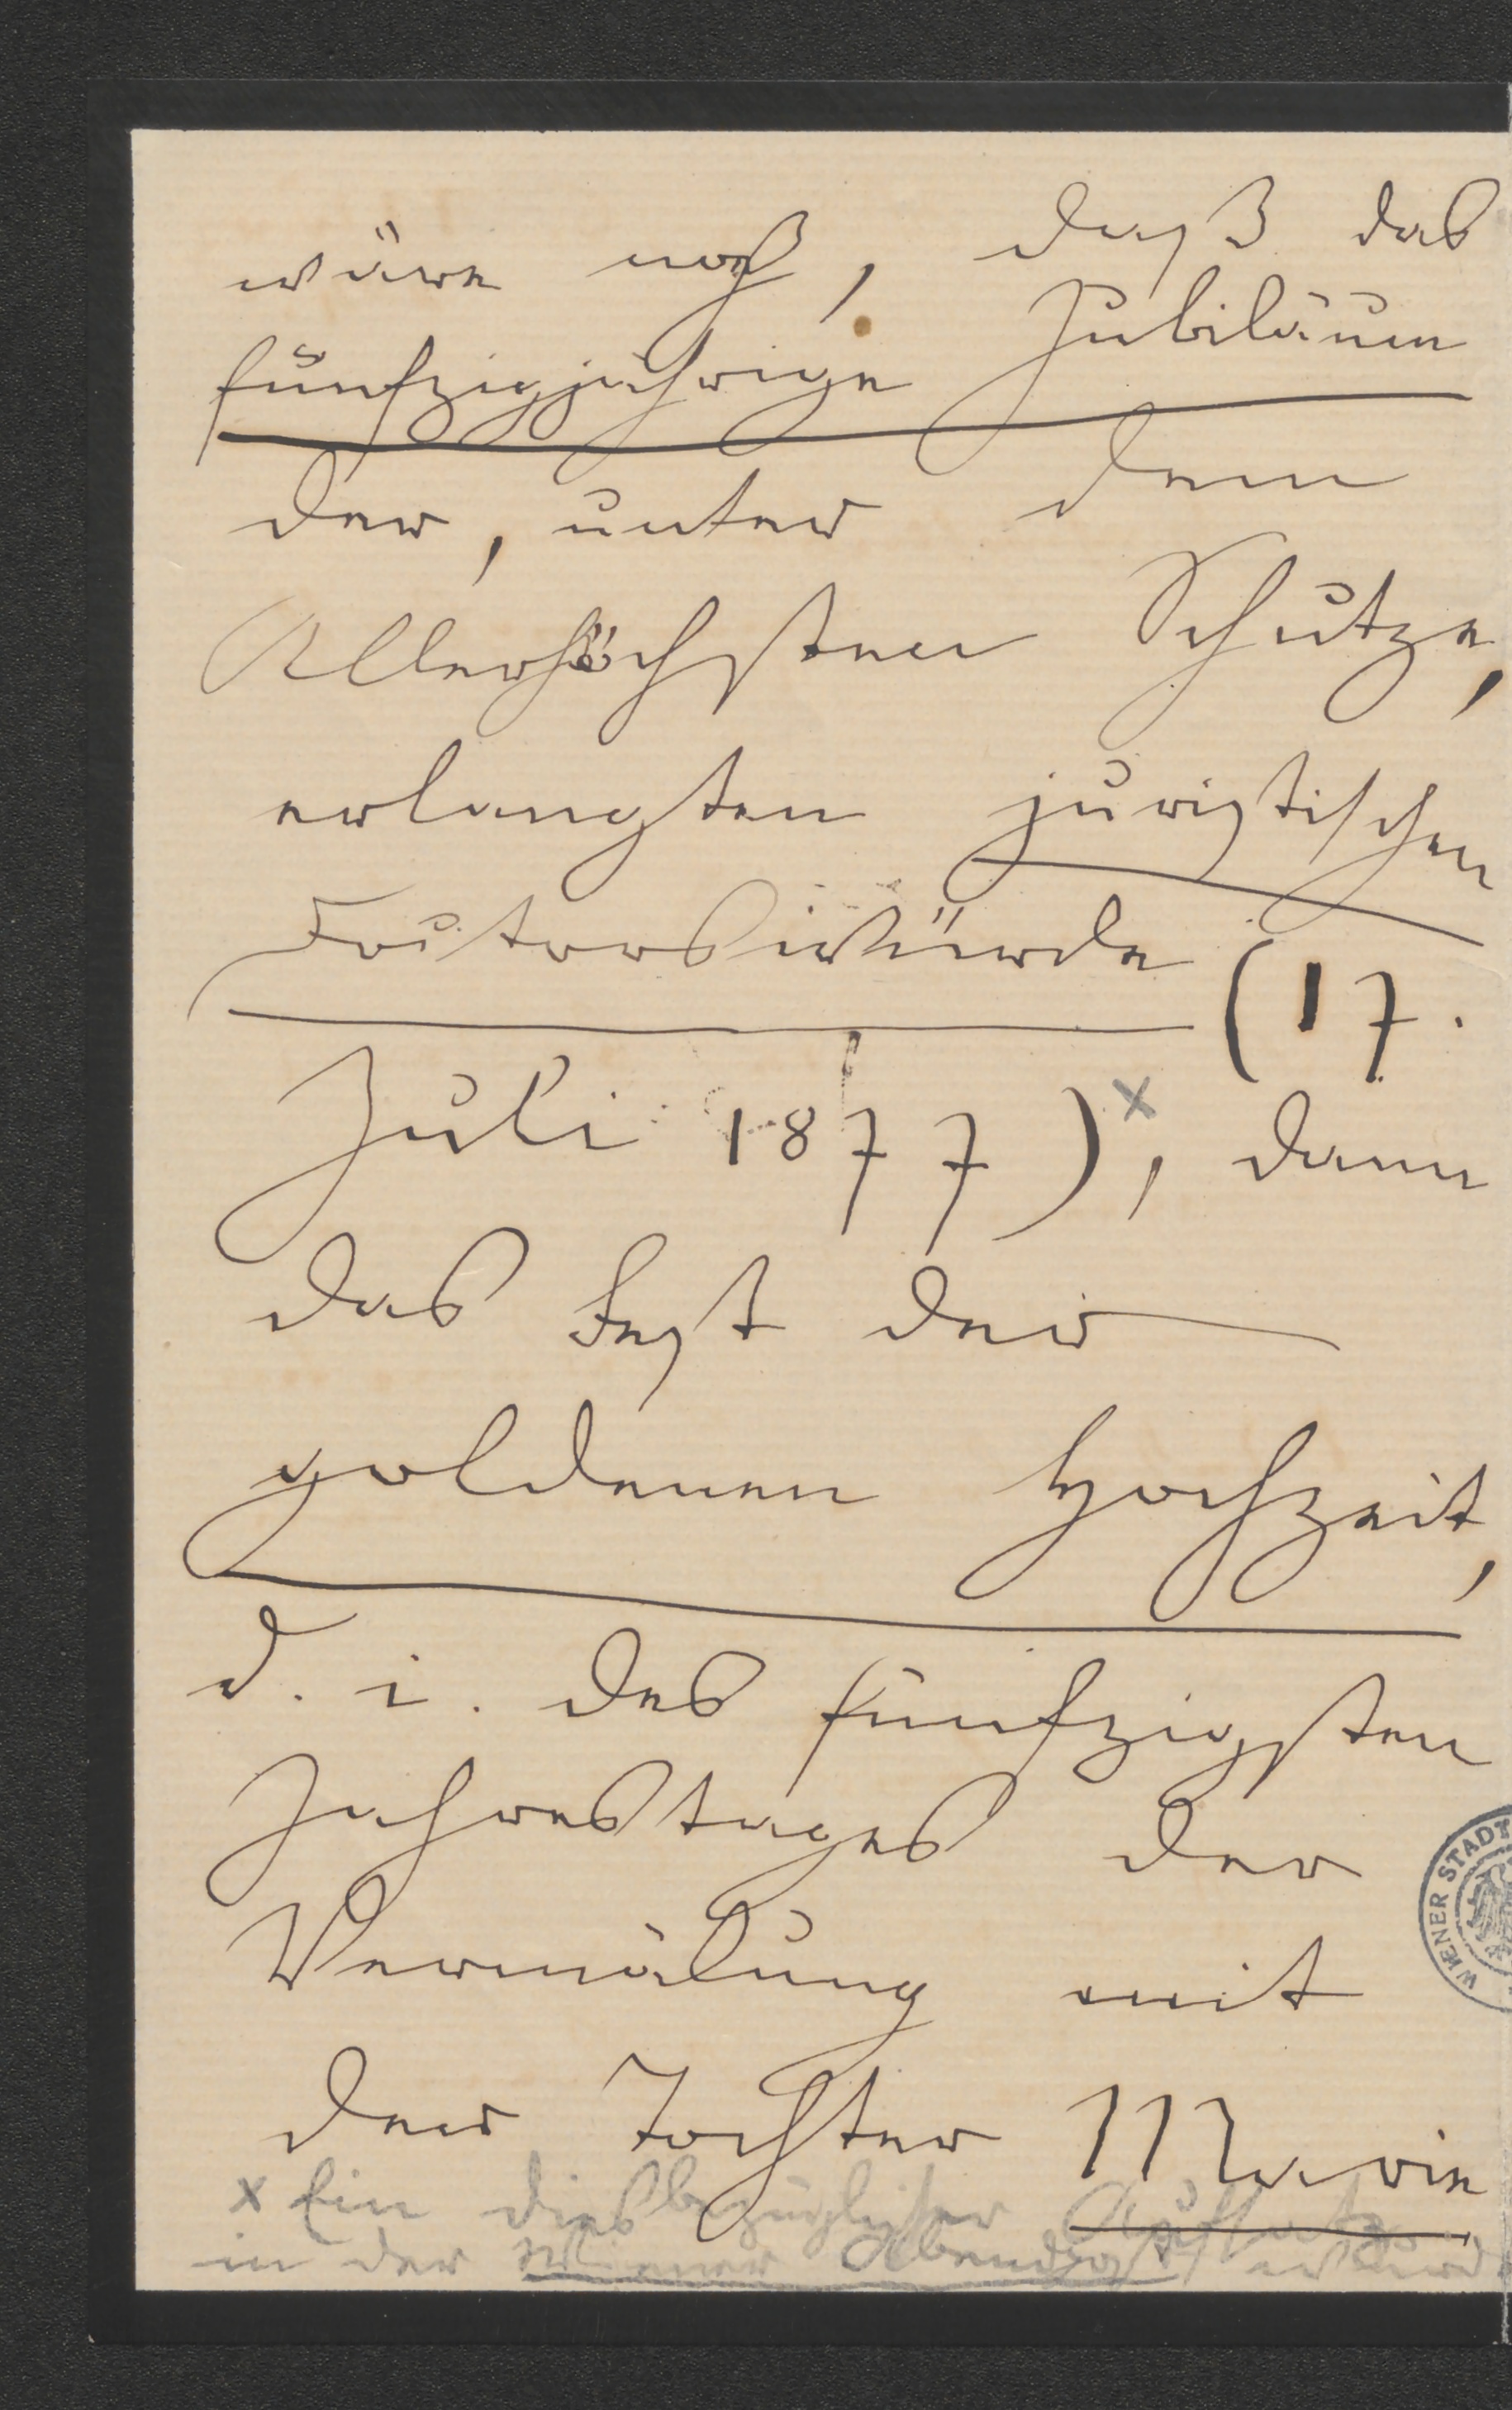 wäre noch, daß das
fünfzigjährige Jubiläum
der, unter dem
Allerhöchsten Schutze,
erlangten juristischen
Doctorswürde (17.
Juli 1877)x, dann
das Fest der
goldenen Hochzeit,
d. i. des fünfzigsten
Jahrestages der
Vermälung mit
der Tochter Marie
x Ein diesbezüglicher Aufsatz
in der Wiener Abendpost
WIENER STADT